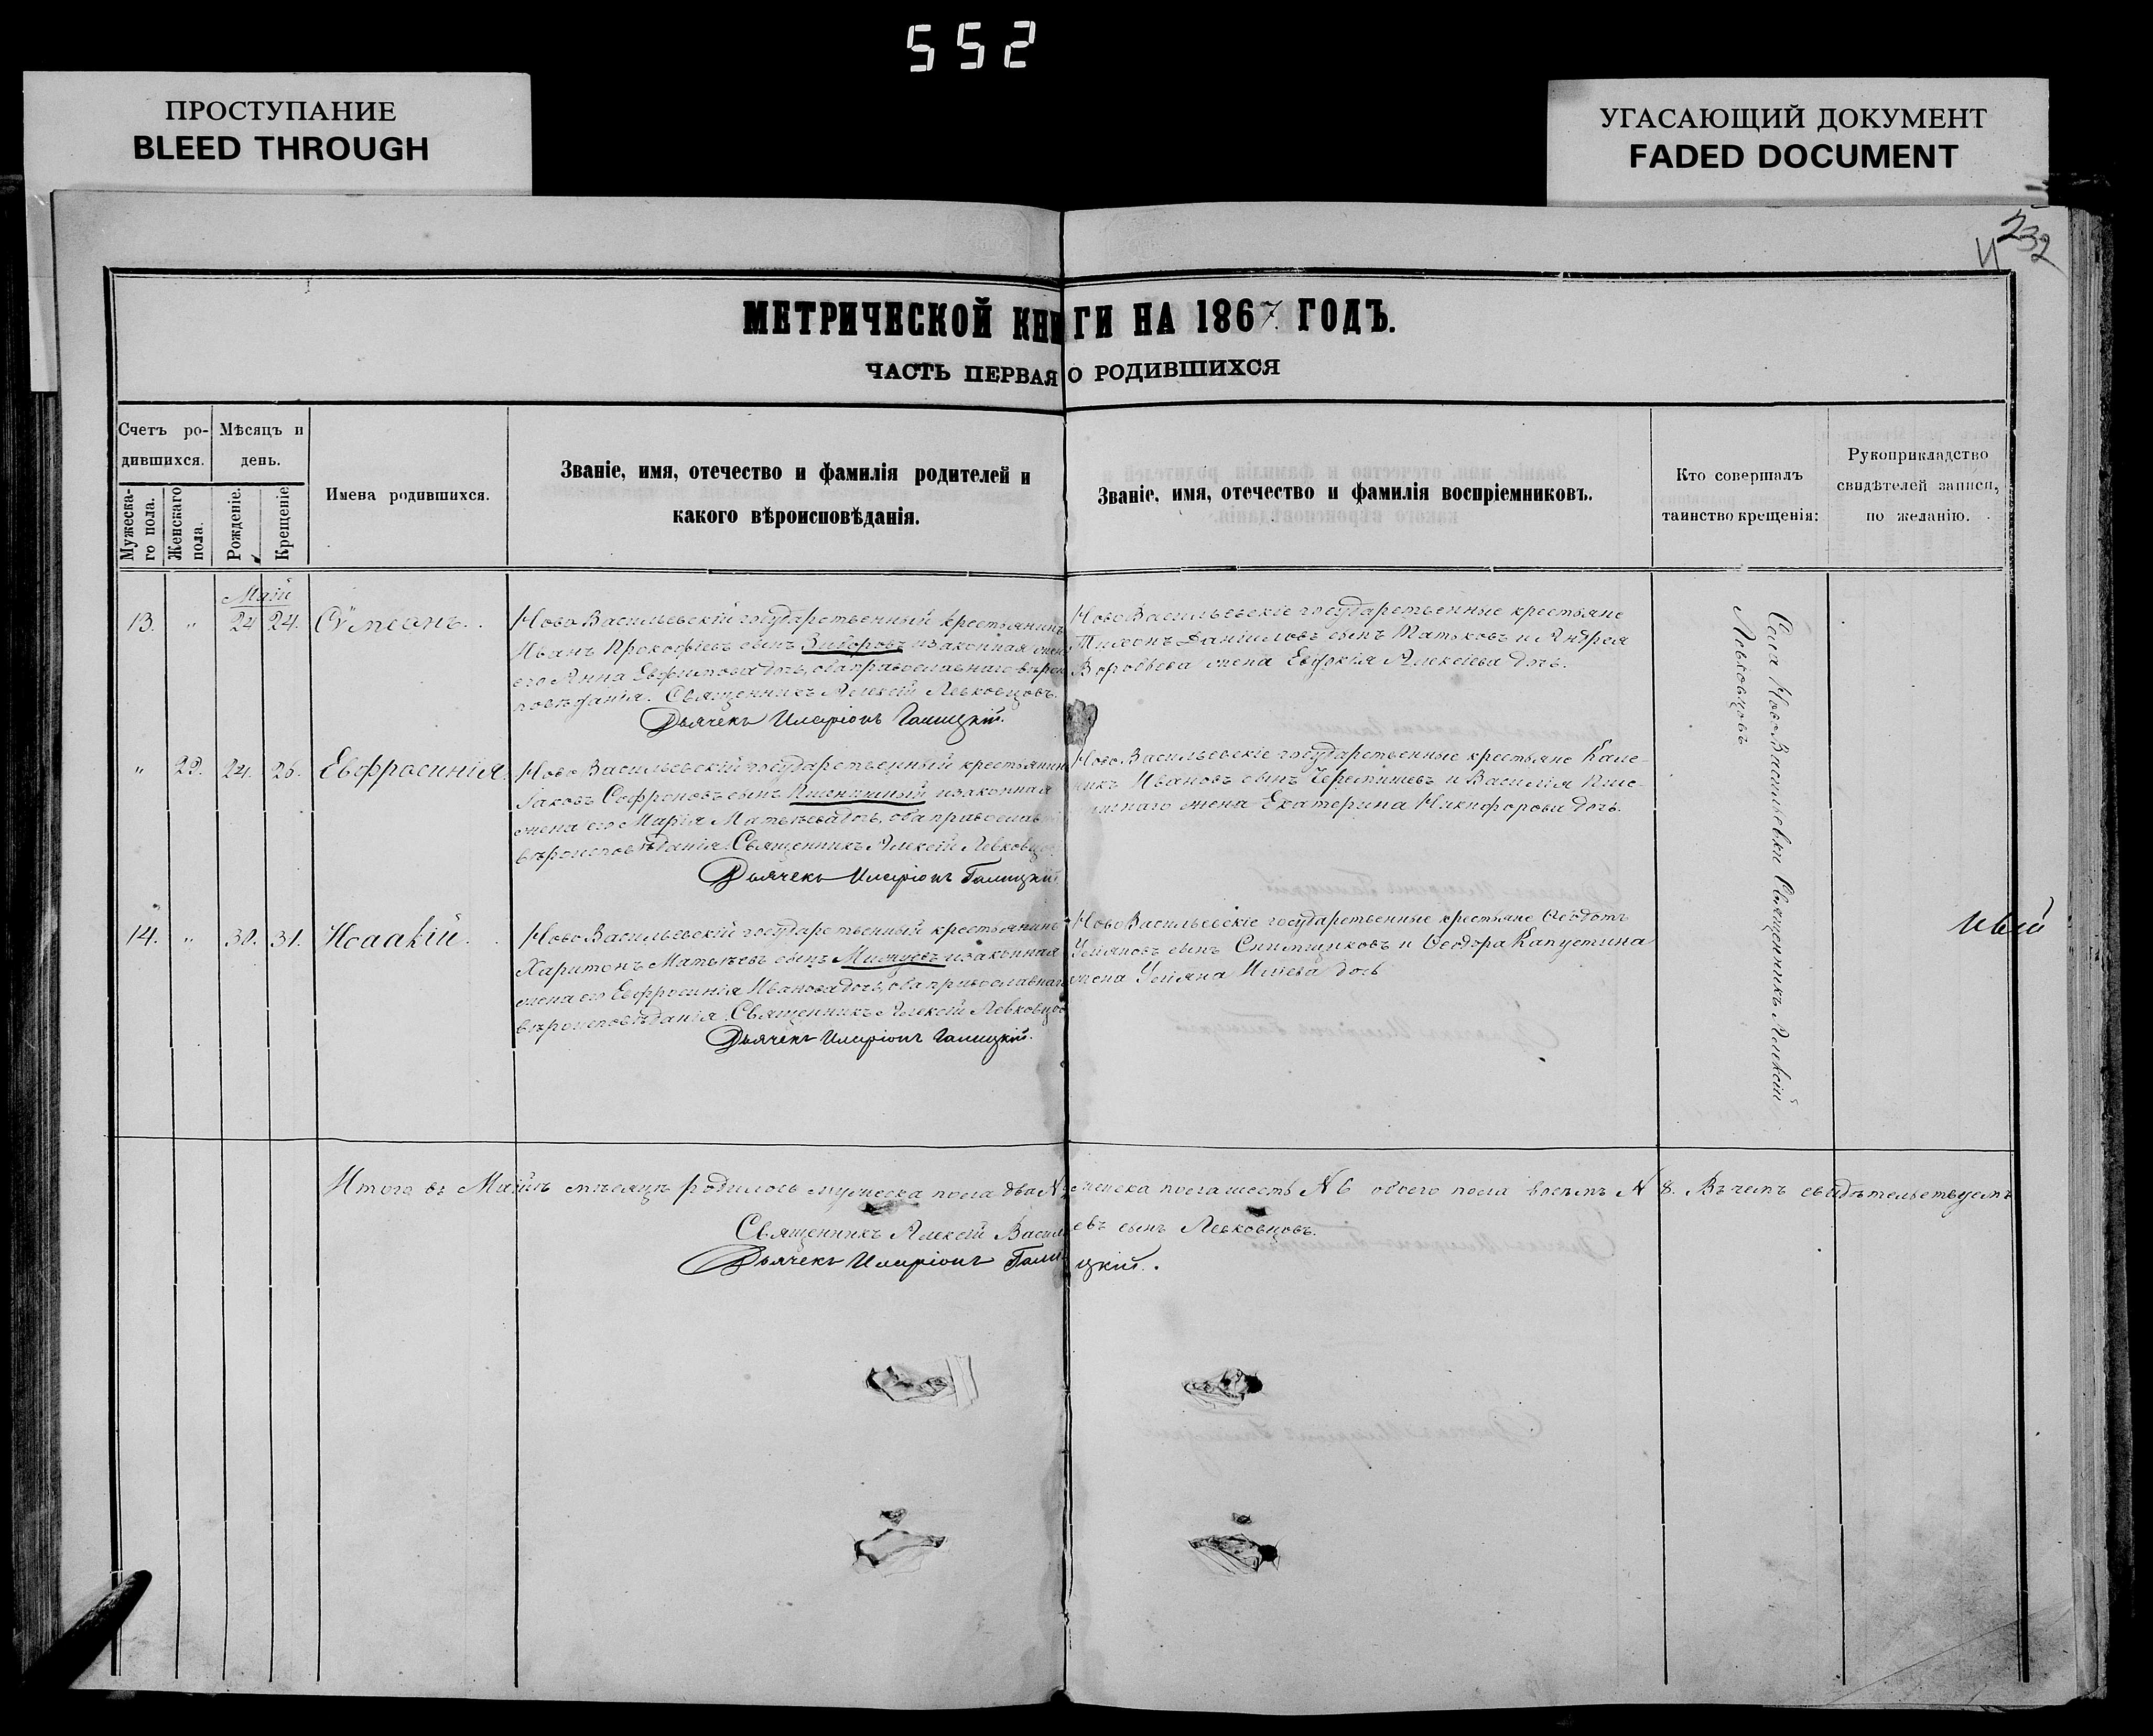 552
ПРОСТУПАНИЕ
BLEED THROUGH
УГАСАЮЩИЙ ДОКУМЕНТ
FADED DOCUMENT
232
МЕТРИЧЕСКОЙ КНИГИ НА 1867 ГОДЪ.
ЧАСТЬ ПЕРВАЯ О РОДИВШИХСЯ
Счетъ ро-
дившихся.
Мѣсяцъ и
день.
Мужеска-
го пола.
Женскаго
пола.
Рожденіе.
Крещеніе.
Имена родившихся.
Званіе, имя, отечество и фамилія родителей и
какого вѣроисповѣданія.
Званіе, имя, отечество и фамилія воспріемниковъ.
Кто совершалъ
таинство крещенія:
Рукоприкладство
свидѣтелей записи,
по желанію.
Май
13. " 24 24. Сѵмеонъ.
НовоВасильевскій государственный крестьянинъ
Иванъ Прокофіевъ сынъ Зиборовъ и законная жена
его Анна Евфимова дочь, оба православнаго вѣроис
повѣданія. Священникъ Алексій Левковцовъ.
Дьячекъ Иларіонъ Галицкій.
НовоВасильевскіе государственные крестьяне
Тихонъ Даніиловъ сынъ Матьковъ и Андрея
Воробьева жена Евдокія Алексіева дочь.
Села НовоВасильевки Священникъ Алексій
Левковцовъ
" 22. 24. 26. Евфросинія
Ново Васильевскій государственный крестьянинъ
Іаковъ Софроновъ сынъ Пшеничный и законная
жена его Марія Матвѣева дочь, оба православн
вѣроисповѣданія. Священникъ Алексій Левковцо
Дьячекъ Иларіонъ Галицкій
НовоВасильевскіе государственные крестьяне Кале-
никъ Ивановъ сынъ и Василія Пше-
ничнаго жена Екатерина Никифорова дочь.
14. " 30. 31. Исаакій.
НовоВасильевскій государственный крестьянинъ
Харитонъ Матвѣевъ сынъ и законная
жена его Евфросинія Иванова дочь, оба православнаго
вѣроисповѣданія. Священникъ Алексій Левковцов
Дьячекъ Иларіонъ Галицкій.
НовоВасильевскіе государственные крестьяне Ѳеодотъ
Ульяновъ сынъ Снитщиковъ и Ѳеодора Капустина
жена Ульяна Ильева дочь
Итого въ Маіѣ мѣсяцѣ родилось мужеска пола два № женска пола шесть №6 обоего пола восемь № 8. Въ чемъ свидѣтельствуемъ
Священникъ Алексій Васильевъ сынъ Левковцовъ.
Дьячекъ Иларіонъ Галицкій.